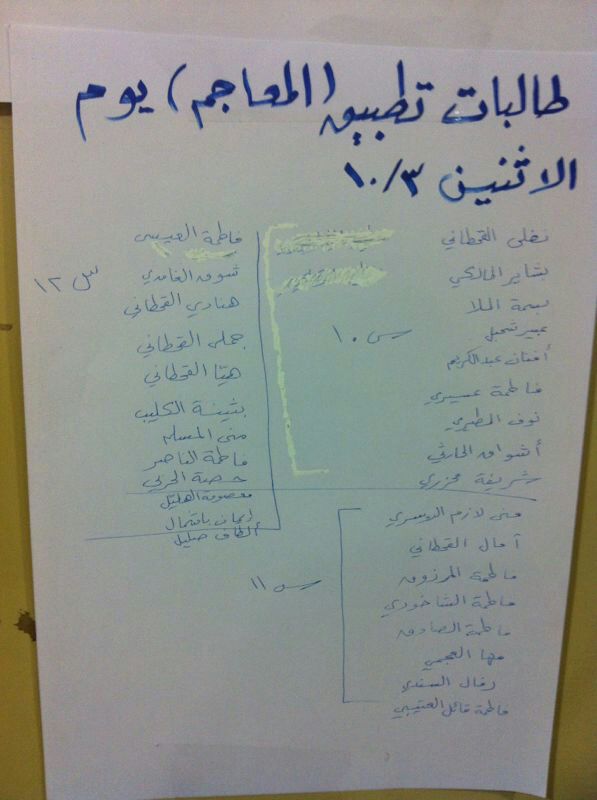 طالبات تطبيق (المعاجم) يوم
الاثنين ١٠/٣
نفلى القحطاني
بشاير المالكي
بسمة الملا
عبير
أفنان عبدالكريم
فاطمة عسيري
نوف المطيري
أشواق الحارثي
شريفة
س ١٠
منى لازم الدوسري
آمال القحطاني
فاطمة المرزوق
فاطمة الشاخوري
فاطمة الصادق
مها العجمي
فاطمة العتيبي
س ١١
فاطمة العيسى
شوق الغامدي
هنادي القحطاني
القحطاني
هيا القحطاني
بثينة الكليب
منى المسلم
فاطمة الناصر
حصة الحربي
معصومة الهليل
إيمان باشمال
ألطاف صليل
س ١٢